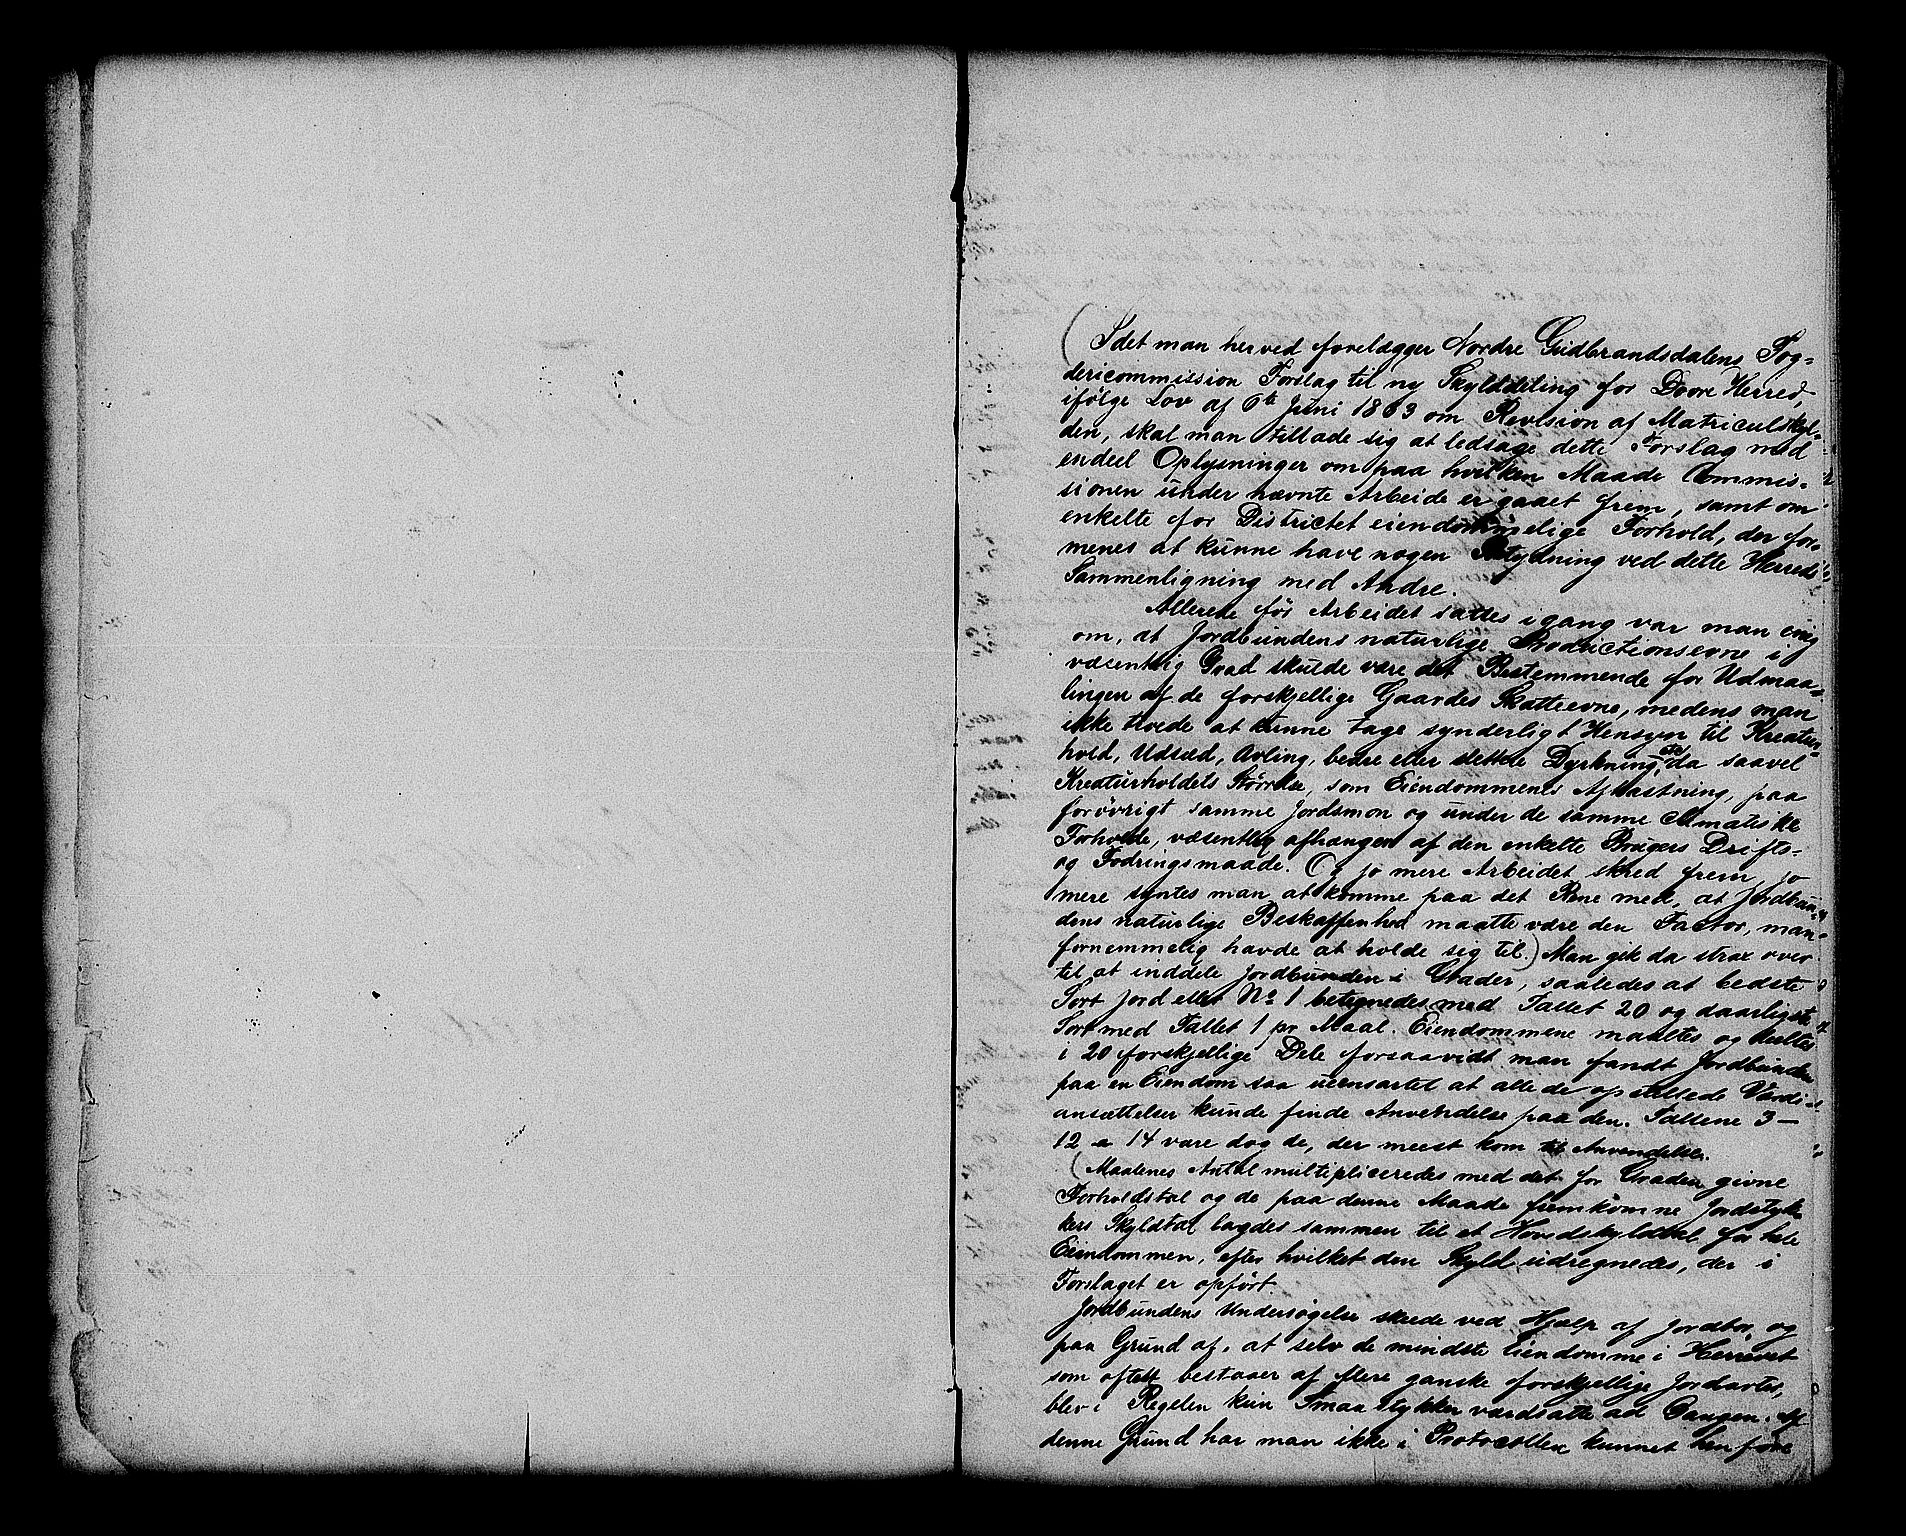 (Idet man herved forelægger Nordre Gudbrandsdalens Fog-
dericommission Forslag til ny Skylddeling for Dovre Herred,
ifølge Lov af 6te Juni 1863 om Revision af Matriculskyl-
den, skal man tillade sig at ledsage dette Forslag med
endeel Oplysninger om paa hvilken Maade Commis-
sionen under nævnte Arbeide er gaaet frem, samt om
enkelte for Districtet eiendommelige Forhold, der for-
menes at kunne have nogen Betydning ved dette Herreds
Sammenligning med Andre.
Allerede før Arbeidet sattes igang var man enig
om, at Jordbundens naturlige Productionsevne i
væsentlig Grad skulde være det Bestemmende for Udmaa-
lingen af de forskjellige Gaardes Skatteevne, medens man
ikke troede at kunne tage synderligt Hensyn til Kreatur-
hold, Udsæd, Avling, bedre eller slettere Dyrkning, da saavel
Kreaturholdets Størrelse, som Eiendommenes Afkastning, paa
forøvrigt samme Jordsmon og under de samme climatiske
Forholde, væsentlig afhænger af den enkelte Brugers Drifts-
og Fodringsmaade. Og jo mere Arbeidet skred frem, jo
mere syntes man at komme paa det Rene med, at Jordbun-
dens naturlige Beskaffenhed maatte være den Factor, man
fornemmelig havde at holde sig til.) Man gik da strax over
til at inddele Jordbunden i Grader, saaledes at bedste
Sort Jord eller No 1 betegnedes med Tallet 20 og daarligste
Sort med Tallet 1 pr Maal. Eiendommene maaltes og deeltes
i 20 forskjellige Dele forsaavidt man fandt Jordbunden
paa en Eiendom saa ueensartet at alle de opstillede Værdi-
ansættelser kunde finde Anvendelse paa den. Tallene 3 –
12 a 14 vare dog de, der meest kom til Anvendelse.
(Maalenes Antal multipliceredes med det for Graden givne
Forholdstal og de paa denne Maade fremkomne Jordstyk-
kers Skyldtal lagdes sammen til et Hovedskyldtal for hele
Eiendommen, efter hvilket den Skyld udregnedes, der i
Forslaget er opført.
Jordbundens Undersøgelse skede ved Hjælp af Jordbor, og
paa Grund af, at selv de mindste Eiendomme i Herredet
som oftest bestaaer af flere ganske forskjellige Jordarter,
blev i Regelen kun Smaastykker værdsatte ad Gangen. Af
denne Grund har man ikke i Protocollen kunnet henføre